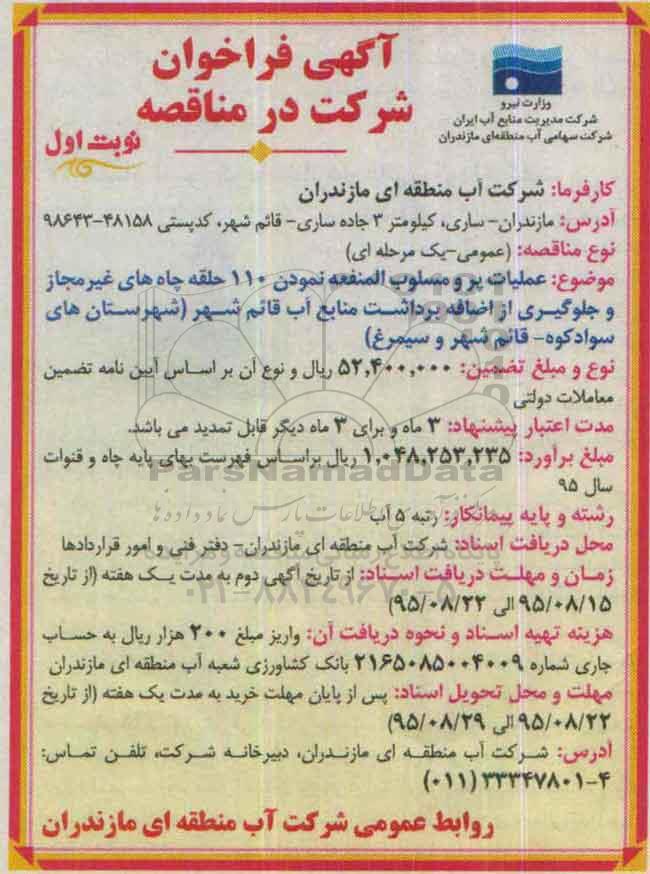 آگهی فراخوان
شرکت در مناقصه
نوبت اول
وزارت نیرو
شرکت مدیریت منابع آب ایران
شرکت سهامی آب منطقه‌ای مازندران
کارفرما: شرکت آب منطقه ای مازندران
آدرس: مازندران- ساری، کیلومتر ۳ جاده ساری- قائم شهر، کدپستی ۴۸۱۵۸-۹۸۶۴۳
نوع مناقصه: (عمومی-یک مرحله ای)
موضوع: عملیات پر و مسلوب المنفعه نمودن ۱۱۰ حلقه چاه های غیرمجاز
و جلوگیری از اضافه برداشت منابع آب قائم شهر (شهرستان های
سوادکوه- قائم شهر و سیمرغ)
نوع و مبلغ تضمین: ۵۲,۴۰۰,۰۰۰ ریال و نوع آن بر اساس آیین نامه تضمین
معاملات دولتی
مدت اعتبار پیشنهاد: ۳ ماه و برای ۳ ماه دیگر قابل تمدید می باشد.
مبلغ برآورد: ۱,۰۴۸,۲۵۳,۲۳۵ ریال براساس فهرست بهای پایه چاه و قنوات
سال ۹۵
رشته و پایه پیمانکار: رتبه ۵ آب
محل دریافت اسناد: شرکت آب منطقه ای مازندران- دفتر فنی و امور قراردادها
زمان و مهلت دریافت اسناد: از تاریخ آگهی دوم به مدت یک هفته (از تاریخ
۹۵/۰۸/۱۵ الی ۹۵/۰۸/۲۲)
هزینه تهیه اسناد و نحوه دریافت آن: واریز مبلغ ۲۰۰ هزار ریال به حساب
جاری شماره ۲۱۶۵۰۸۵۰۰۴۰۰۹ بانک کشاورزی شعبه آب منطقه ای مازندران
مهلت و محل تحویل اسناد: پس از پایان مهلت خرید به مدت یک هفته (از تاریخ
۹۵/۰۸/۲۲ الی ۹۵/۰۸/۲۹)
آدرس: شرکت آب منطقه ای مازندران، دبیرخانه شرکت، تلفن تماس:
۳۳۳۴۷۸۰۱-۴ (۰۱۱)
روابط عمومی شرکت آب منطقه ای مازندران
ParsNamadData